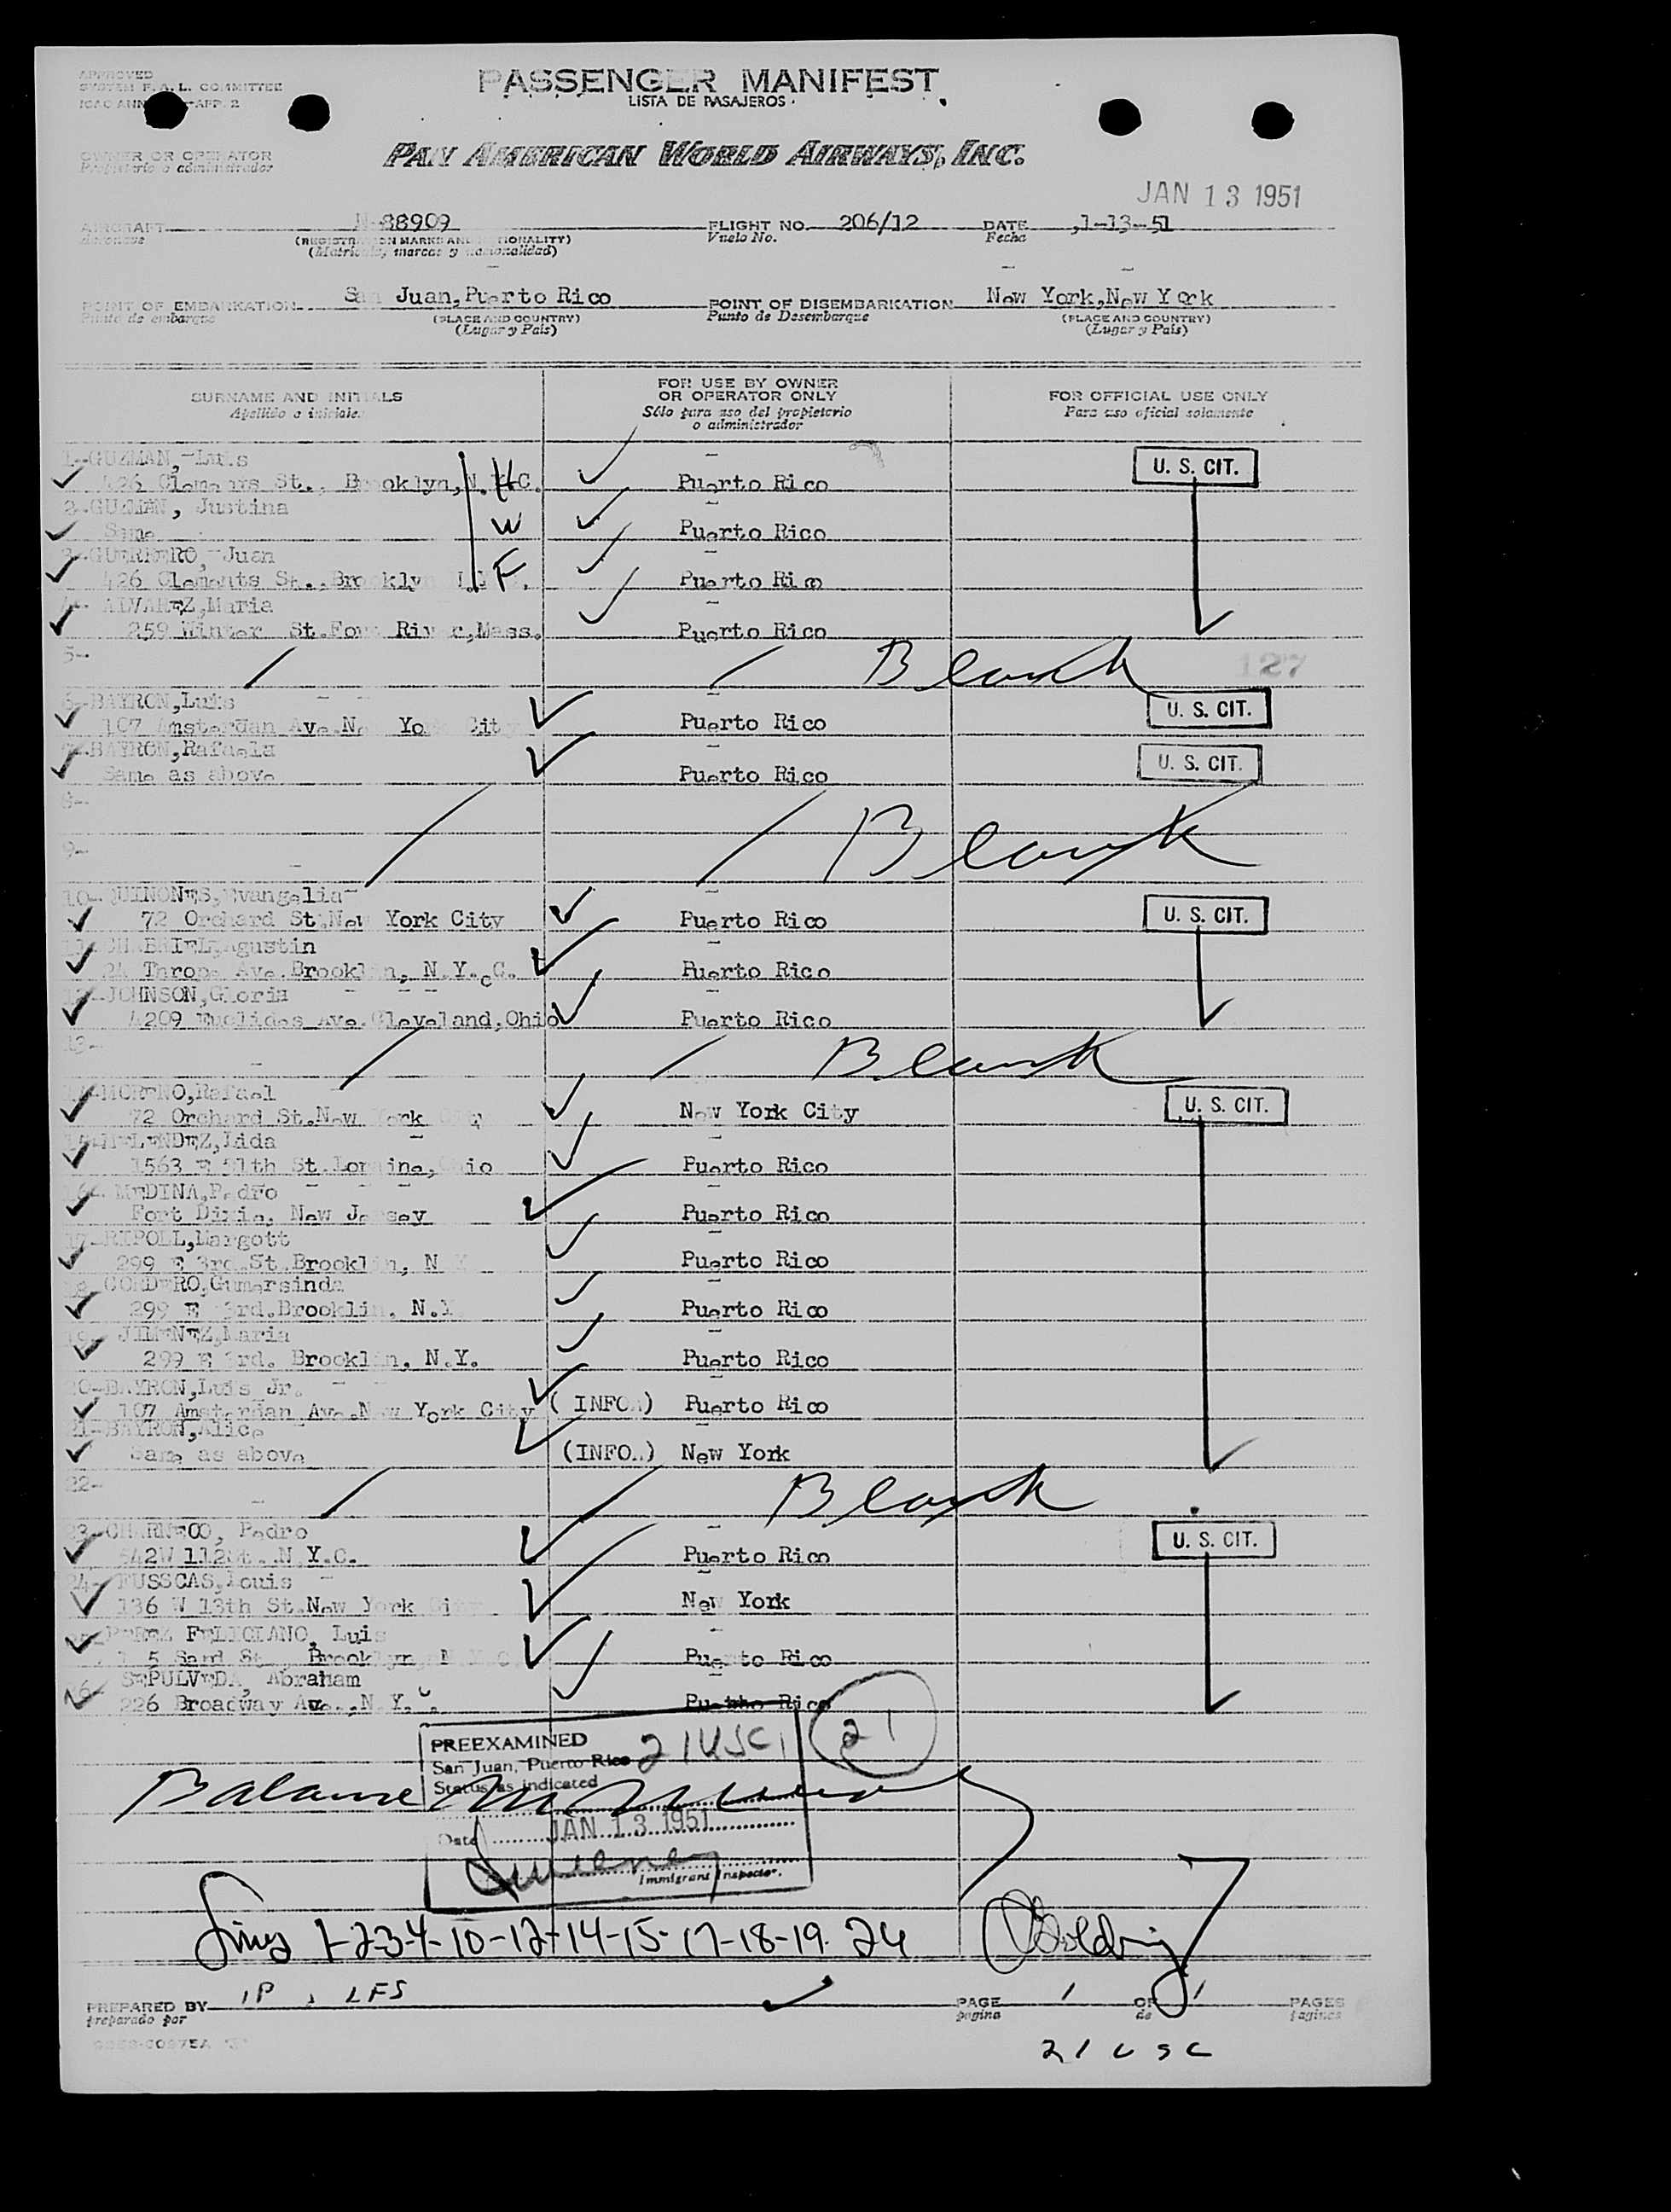 APPROVED
SYSTEM F.A.L. COMMITTEE
ICAO ANN APP. 2
PASSENGER MANIFEST
LISTA DE PASAJEROS
OWNER OR OPERATOR
Propietario o administrador
PAN AMERICAN WORLD AIRWAYS, INC.
JAN 13 1951
AIRCRAFT N-88909 FLIGHT NO. 206/12 DATE 1-13-51
Aeronave (REGISTRATION MARKS AND NATIONALITY) Vuelo No. Fecha
(Matricula, marcas y nacionalidad)
POINT OF EMBARKATION San Juan, Puerto Rico POINT OF DISEMBARKATION New York, New York
Punto de embarque (PLACE AND COUNTRY) Punto de Desembarque (PLACE AND COUNTRY)
(Lugar y Pais) (Lugar y Pais)
SURNAME AND INITIALS FOR USE BY OWNER OR OPERATOR ONLY FOR OFFICIAL USE ONLY
Apellido e iniciales Sólo para uso del propietario o administrador Para uso oficial solamente
1-GUZMAN, Luis U. S. CIT.
426 Clements St., Brooklyn, N.Y.C. H Puerto Rico
2-GUZMAN, Justina
Same W Puerto Rico
3-GUERRERO, Juan
426 Clements St., Brooklyn N.Y.C. F Puerto Rico
4- ALVAREZ, Maria
259 Winter St. For River, Mass. Puerto Rico
5- Blank 127
6-BAYRON, Luis U. S. CIT.
107 Amsterdan Ave. New York City Puerto Rico
7-BAYRON, Rafaela U. S. CIT.
Same as above Puerto Rico
8-
9- Blank
10-QUINONES, Evangelia
72 Orchard St. New York City Puerto Rico U. S. CIT.
Agustin
Ave. Brooklin, N.Y.C. Puerto Rico
12-JOHNSON, Gloria
4209 Euclides Ave. Cleveland, Ohio Puerto Rico
13- Blank
14-MORENO, Rafael U. S. CIT.
72 Orchard St. New York City New York City
15-MELENDEZ, Lida
1563 E 31th St. Loraine, Ohio Puerto Rico
16- MEDINA, Pedro
Fort Dixie, New Jersey Puerto Rico
17-RIPOLL, Margott
299 E 3rd. St. Brooklin, N.Y. Puerto Rico
18-CORDERO, Gumersinda
299 E 3rd. Brooklin, N.Y. Puerto Rico
19- JIMENEZ, Maria
299 E 3rd. Brooklin, N.Y. Puerto Rico
20-BAYRON, Luis Jr.
107 Amsterdan Ave. New York City (INFO.) Puerto Rico
21-BAYRON, Alice
Same as above (INFO.) New York
22- Blank
23-CHARNECO, Pedro U. S. CIT.
542W 112St. N.Y.C. Puerto Rico
24- FUSSCAS, Louis
136 W 13th St. New York City New York
25-PEREZ FELICIANO, Luis
Sand St., Brooklyn, N.Y.C. Puerto Rico
26- SEPULVEDA, Abraham
226 Broadway Ave., N.Y.C. Puerto Rico
PREEXAMINED 21 USC 21
San Juan, Puerto Rico
Status as indicated
Balance
Date JAN 13 1951
Sweeney
Immigrant Inspector.
Lines 1-2-3-4-10-12-14-15-17-18-19-24
PREPARED BY IP LFS PAGE 1 OF 1 PAGES
preparado por pagina de paginas
21 USC